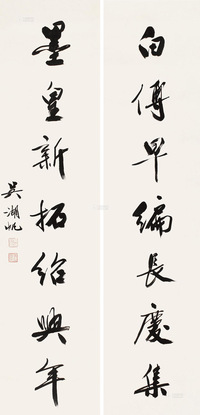 白傅早編長慶集
墨皇新拓紹興年
吳湖帆